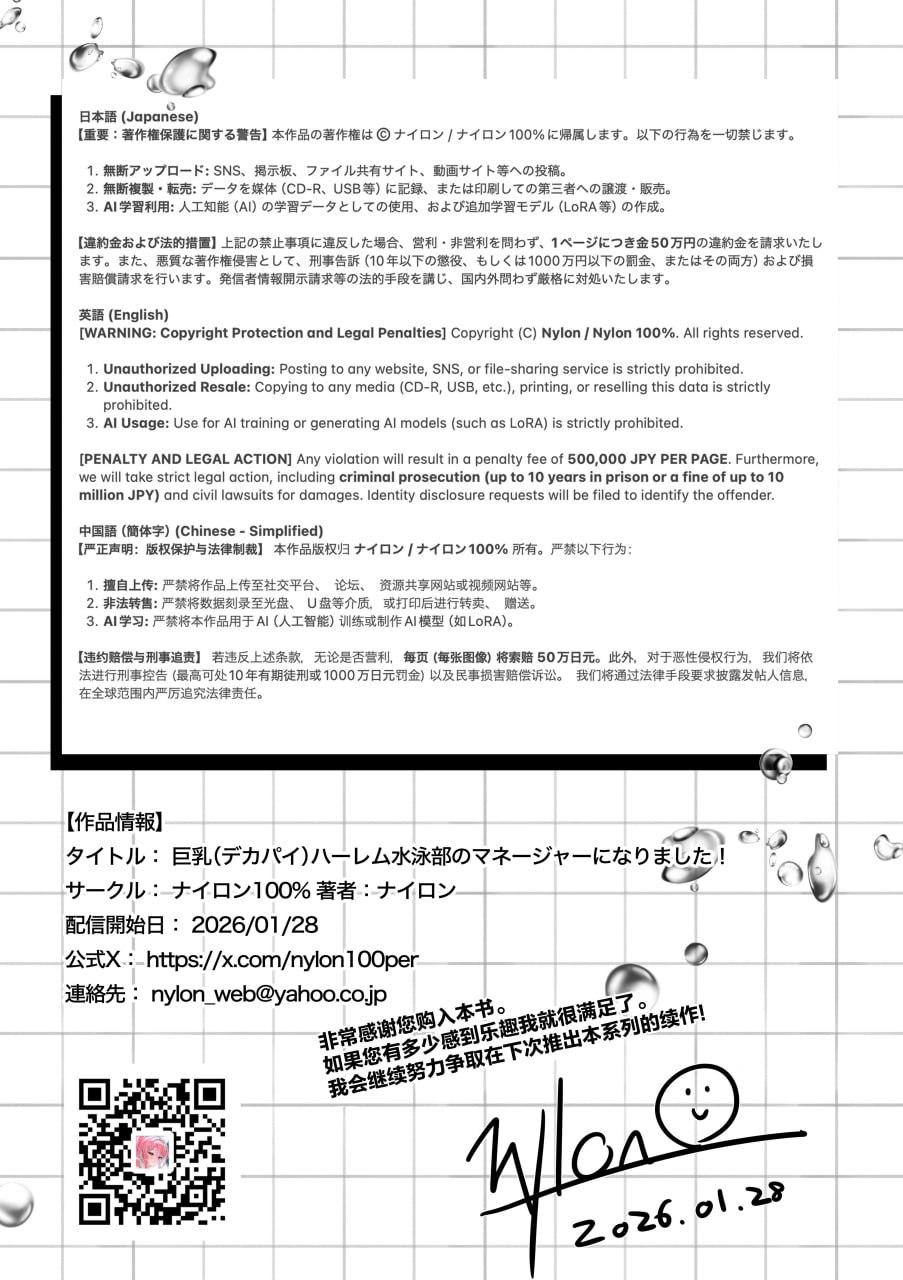 日本語 (Japanese)
【重要：著作権保護に関する警告】本作品の著作権は © ナイロン / ナイロン100% に帰属します。以下の行為を一切禁じます。
1. 無断アップロード: SNS、掲示板、ファイル共有サイト、動画サイト等への投稿。
2. 無断複製・転売: データを媒体（CD-R、USB等）に記録、または印刷しての第三者への譲渡・販売。
3. AI学習利用: 人工知能（AI）の学習データとしての使用、および追加学習モデル（LoRA等）の作成。
【違約金および法的措置】上記の禁止事項に違反した場合、営利・非営利を問わず、1ページにつき金50万円の違約金を請求いたし
ます。また、悪質な著作権侵害として、刑事告訴（10年以下の懲役、もしくは1000万円以下の罰金、またはその両方）および損
害賠償請求を行います。発信者情報開示請求等の法的手段を講じ、国内外問わず厳格に対処いたします。
英語 (English)
[WARNING: Copyright Protection and Legal Penalties] Copyright (C) Nylon / Nylon 100%. All rights reserved.
1. Unauthorized Uploading: Posting to any website, SNS, or file-sharing service is strictly prohibited.
2. Unauthorized Resale: Copying to any media (CD-R, USB, etc.), printing, or reselling this data is strictly
prohibited.
3. AI Usage: Use for AI training or generating AI models (such as LoRA) is strictly prohibited.
[PENALTY AND LEGAL ACTION] Any violation will result in a penalty fee of 500,000 JPY PER PAGE. Furthermore,
we will take strict legal action, including criminal prosecution (up to 10 years in prison or a fine of up to 10
million JPY) and civil lawsuits for damages. Identity disclosure requests will be filed to identify the offender.
中国語（簡体字）(Chinese - Simplified)
【严正声明：版权保护与法律制裁】 本作品版权归 ナイロン / ナイロン100% 所有。严禁以下行为：
1. 擅自上传: 严禁将作品上传至社交平台、 论坛、 资源共享网站或视频网站等。
2. 非法转售: 严禁将数据刻录至光盘、 U盘等介质，或打印后进行转卖、 赠送。
3. AI学习: 严禁将本作品用于AI（人工智能）训练或制作AI模型（如LoRA）。
【违约赔偿与刑事追责】 若违反上述条款，无论是否营利，每页 (每张图像) 将索赔 50万日元。此外，对于恶性侵权行为，我们将依
法进行刑事控告 (最高可处10年有期徒刑或1000万日元罚金) 以及民事损害赔偿诉讼。 我们将通过法律手段要求披露发帖人信息，
在全球范围内严厉追究法律责任。
【作品情報】
タイトル： 巨乳（デカパイ）ハーレム水泳部のマネージャーになりました！
サークル： ナイロン100% 著者：ナイロン
配信開始日： 2026/01/28
公式X： https://x.com/nylon100per
連絡先： nylon_web@yahoo.co.jp
非常感谢您购入本书。
如果您有多少感到乐趣我就很满足了。
我会继续努力争取在下次推出本系列的续作!
Nylon
2026.01.28